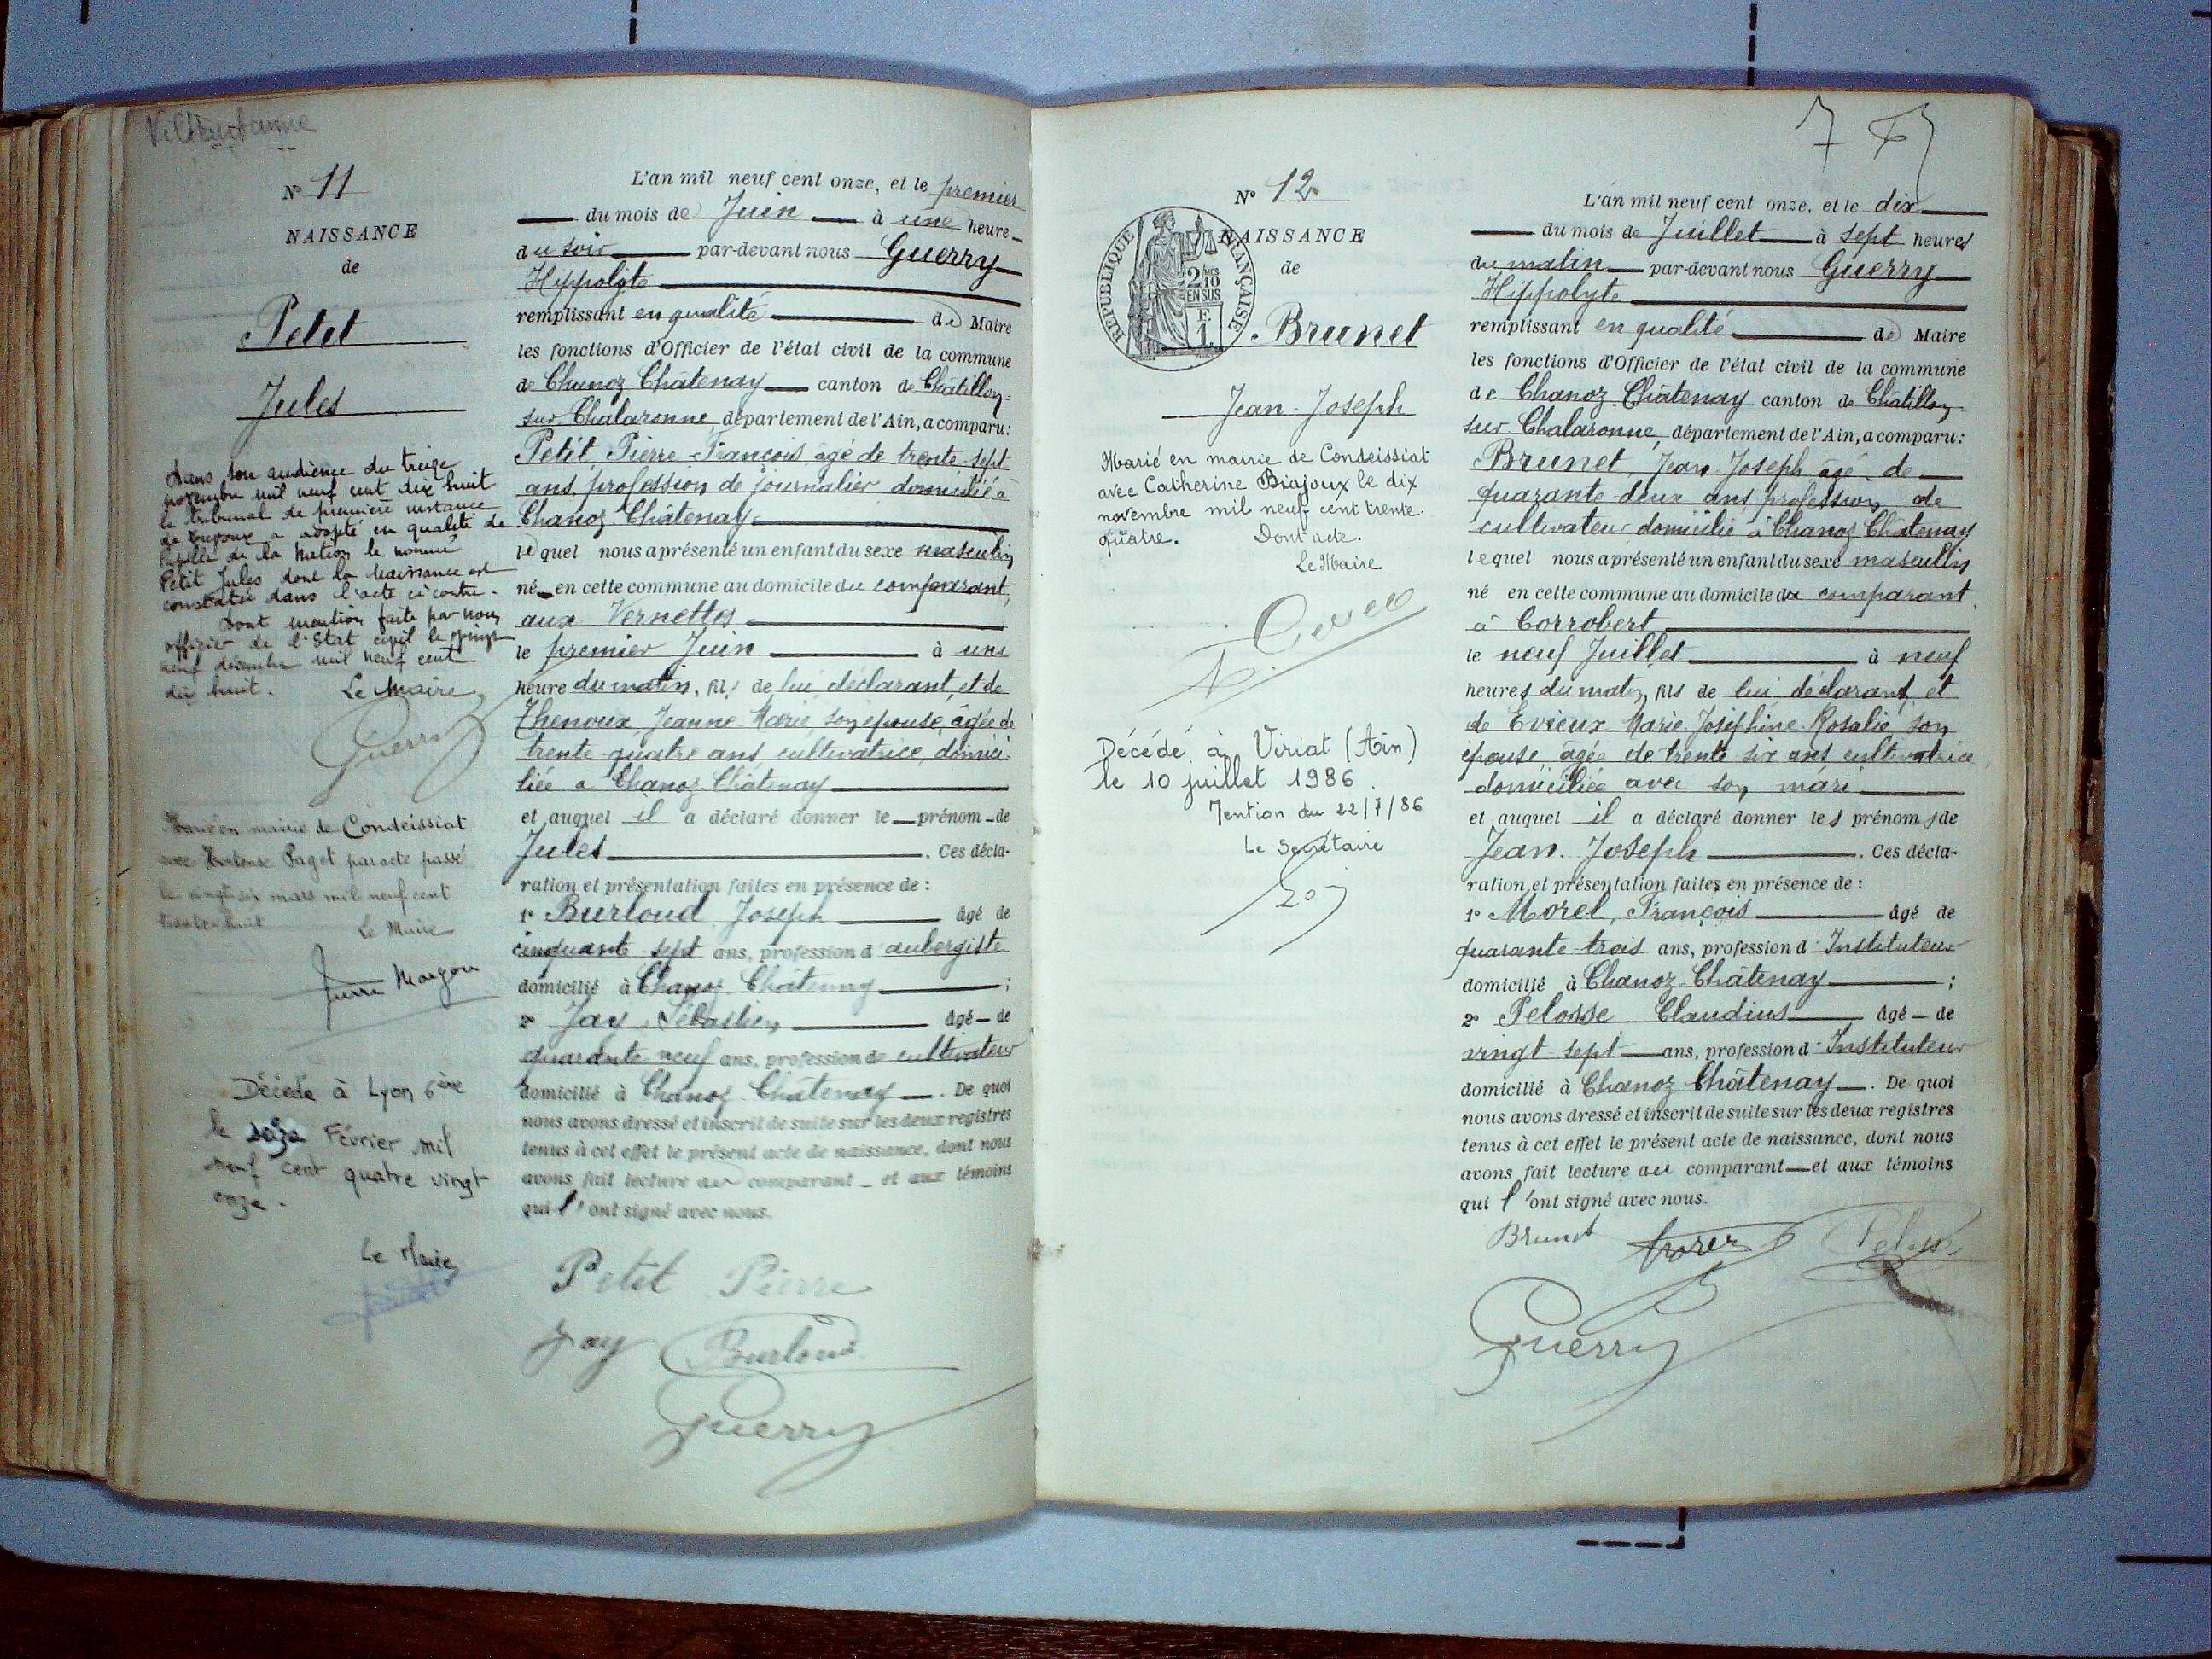 Villeurbanne
N° 11
NAISSANCE
de
Petit
Jules
Dans son audience du treize
novembre mil neuf cent dix huit
le tribunal de première instance
de Trévoux a adopté en qualité de
Pupille de la Nation le nommé
Petit Jules dont la Naissance est
constatée dans l'acte ci contre.
Dont mention faite par nous
officier de l'Etat civil le vingt
neuf décembre mil neuf cent
dix huit. Le Maire,
Guerry
Marié en mairie de Condeissiat
avec Hortense Paget par acte passé
le vingt six mars mil neuf cent
trente huit
Le Maire
Décédé à Lyon 6ème
le seize Février mil
neuf cent quatre vingt
onze.
Le Maire,
L'an mil neuf cent onze, et le premier
du mois de Juin à une heure
du soir par-devant nous Guerry
Hippolyte
remplissant en qualité de Maire
les fonctions d'Officier de l'état civil de la commune
de Chanoz-Châtenay canton de Châtillon-
sur-Chalaronne département de l'Ain, a comparu:
Petit, Pierre-François âgé de trente-sept
ans, profession de journalier domicilié à
Chanoz-Châtenay
lequel nous a présenté un enfant du sexe masculin
né en cette commune au domicile du comparant,
aux Vernettes
le premier Juin à une
heure du matin, fils de lui, déclarant, et de
Thenoux, Jeanne-Marie, son épouse, âgée de
trente-quatre ans, cultivatrice, domici-
liée à Chanoz-Châtenay
et auquel il a déclaré donner le prénom de
Jules. Ces décla-
ration et présentation faites en présence de :
1° Burloud Joseph âgé de
cinquante-sept ans, profession d'aubergiste
domicilié à Chanoz-Châtenay ;
2° Jay, Sébastien âgé de
quarante-neuf ans, profession de cultivateur
domicilié à Chanoz-Châtenay. De quoi
nous avons dressé et inscrit de suite sur les deux registres
tenus à cet effet le présent acte de naissance, dont nous
avons fait lecture au comparant et aux témoins
qui l'ont signé avec nous.
Petit Pierre
Jay Burloud
Guerry
N° 12
NAISSANCE
de
RÉPUBLIQUE FRANÇAISE
2/10
EN SUS
F.
1.
Brunet
Jean-Joseph
Marié en mairie de Condeissiat
avec Catherine Biajoux le dix
novembre mil neuf cent trente-
quatre. Dont acte.
Le Maire
Décédé à Viriat (Ain)
le 10 juillet 1986
Mention du 22/7/86
Le Secrétaire
L'an mil neuf cent onze, et le dix
du mois de Juillet à sept heures
du matin par-devant nous Guerry
Hippolyte
remplissant en qualité de Maire
les fonctions d'Officier de l'état civil de la commune
de Chanoz-Châtenay canton de Châtillon-
sur-Chalaronne, département de l'Ain, a comparu:
Brunet, Jean-Joseph âgé de
quarante-deux ans, profession de
cultivateur domicilié à Chanoz-Châtenay
lequel nous a présenté un enfant du sexe masculin
né en cette commune au domicile du comparant
à Corrobert
le neuf Juillet à neuf
heures du matin, fils de lui déclarant, et
de Evieux Marie-Joséphine-Rosalie son
épouse, âgée de trente six ans cultivatrice
domiciliée avec son mari
et auquel il a déclaré donner les prénoms de
Jean-Joseph. Ces décla-
ration et présentation faites en présence de :
1° Morel, François âgé de
quarante-trois ans, profession d'Instituteur
domicilié à Chanoz-Châtenay ;
2° Pelosse Claudius âgé de
vingt-sept ans, profession d'Instituteur
domicilié à Chanoz-Châtenay. De quoi
nous avons dressé et inscrit de suite sur les deux registres
tenus à cet effet le présent acte de naissance, dont nous
avons fait lecture au comparant et aux témoins
qui l'ont signé avec nous.
Brunet Morel Pelosse
Guerry